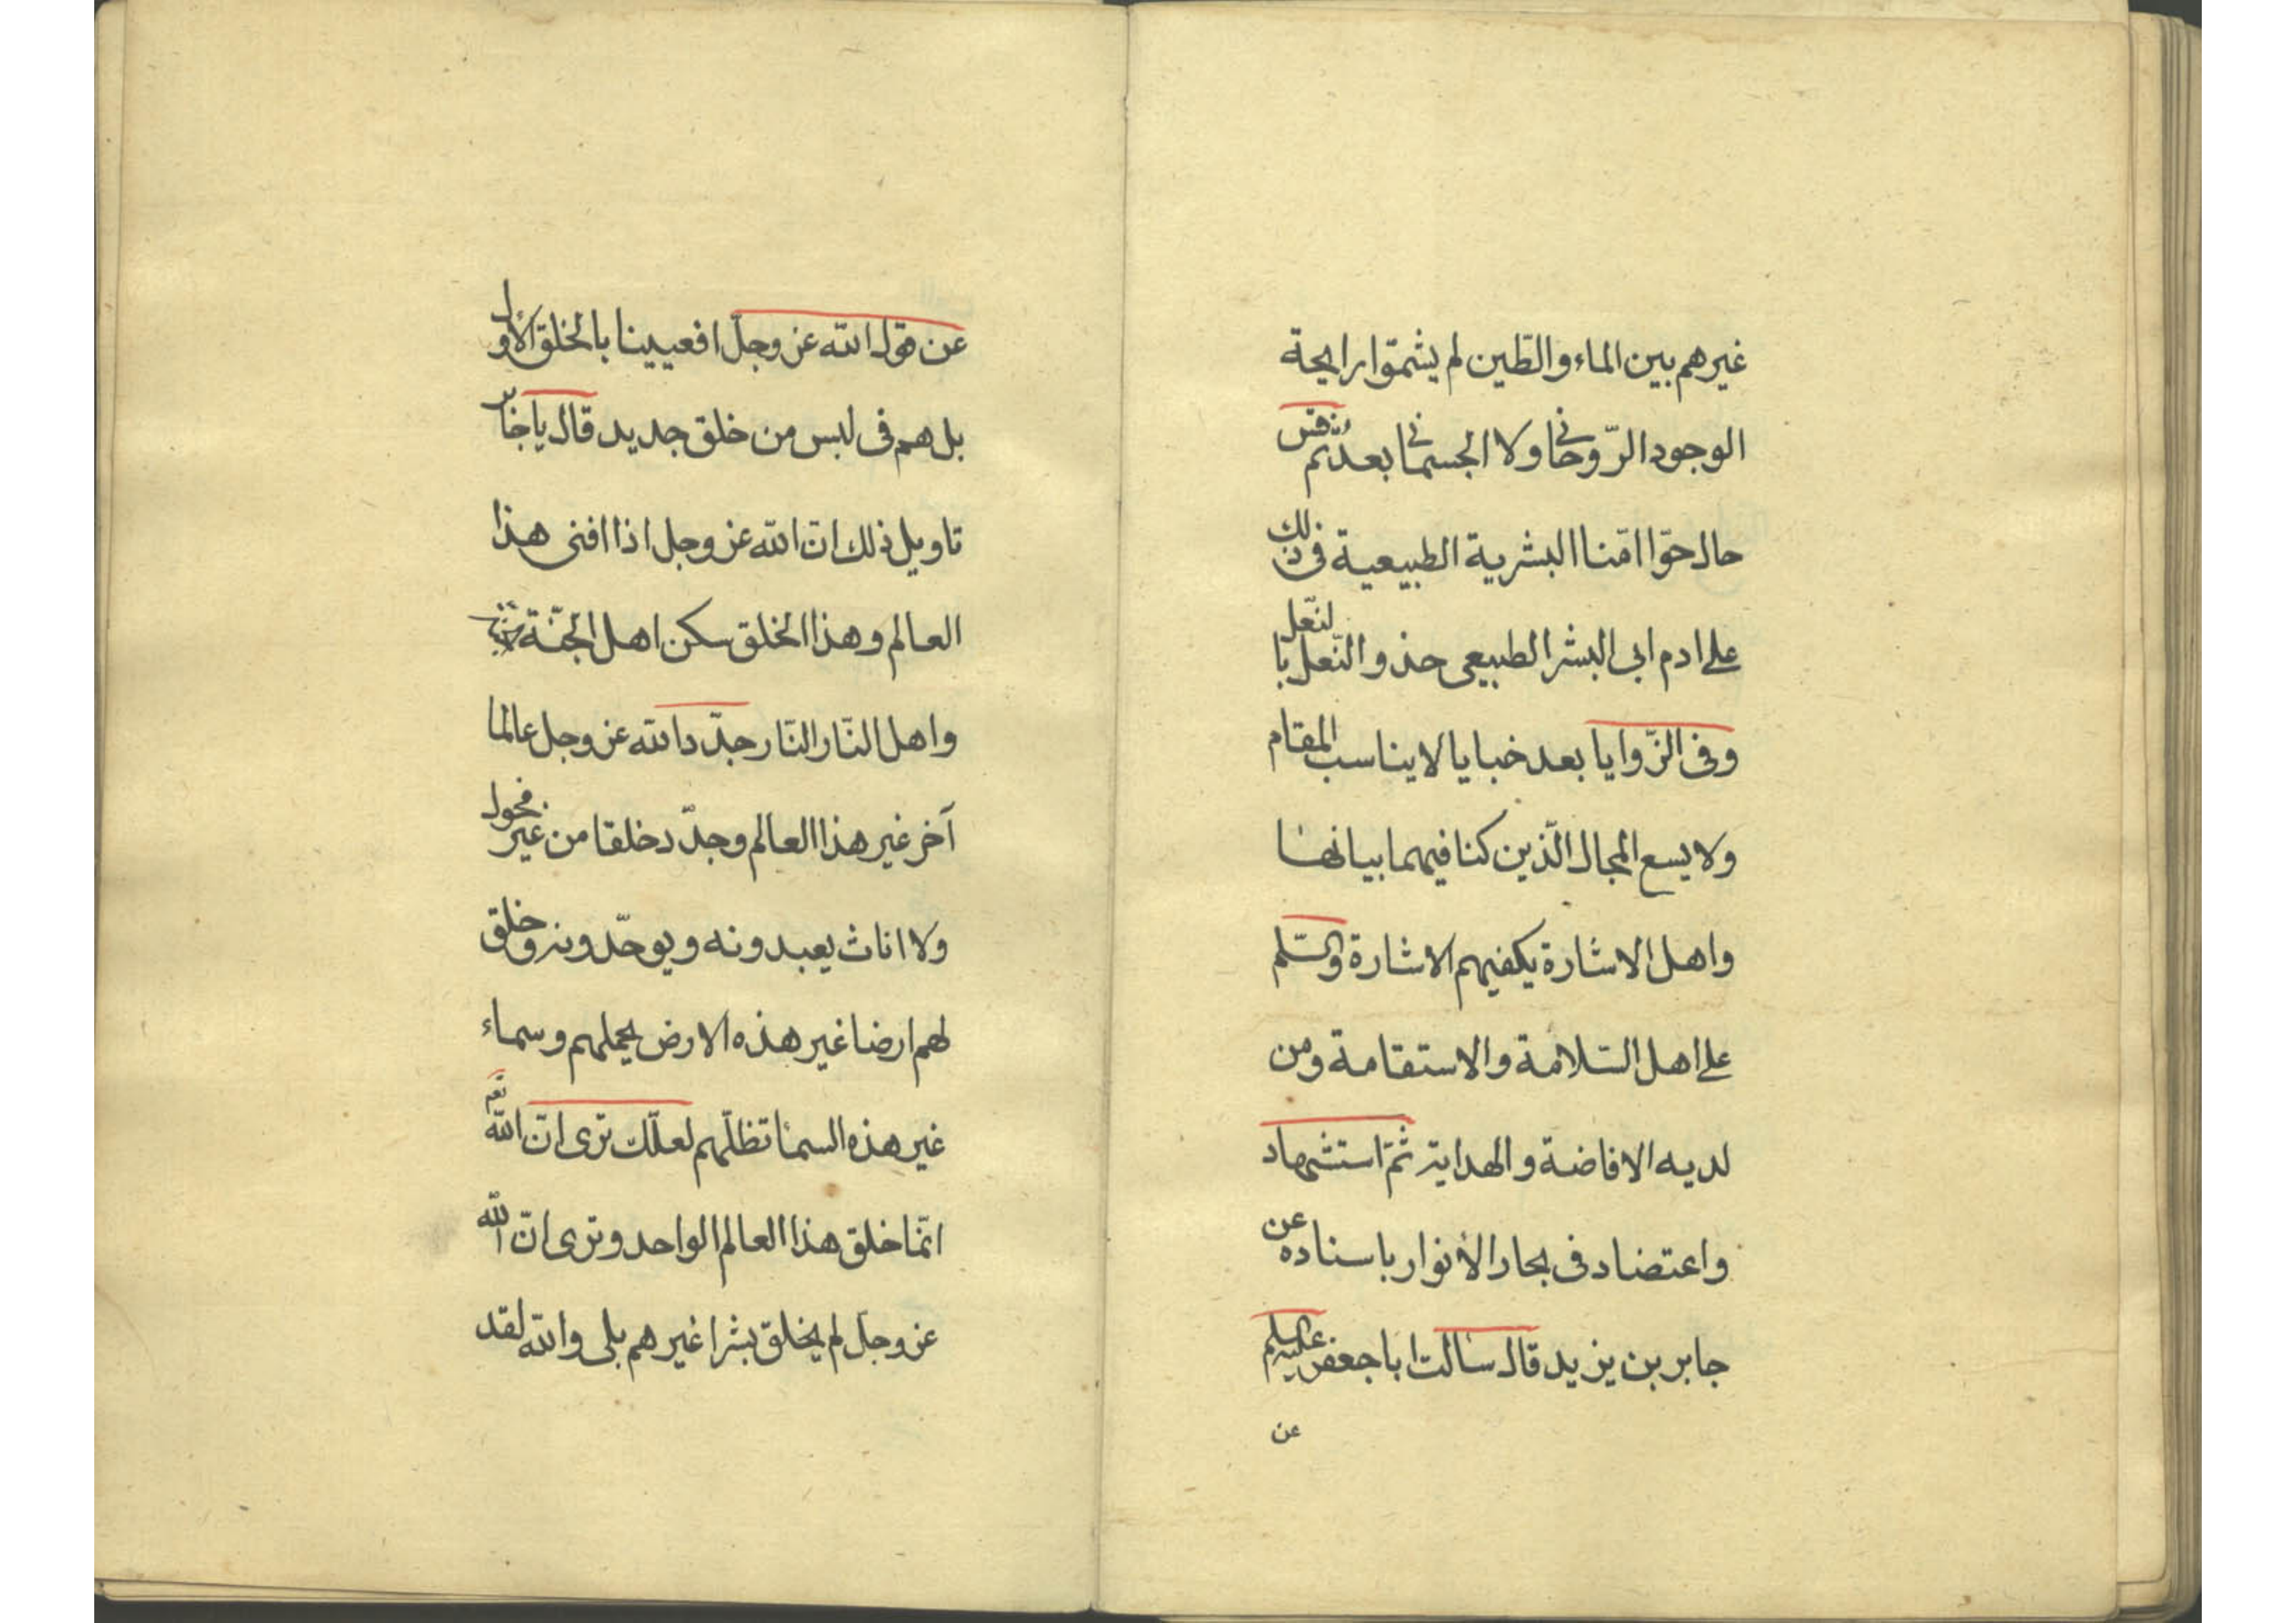 غيرهم بين الماء والطّين لم يشمّوا رايحة
الوجود الرّوحانى ولا الجسمانى بعد ثم قس
حال حوّا امّنا البشرية الطبيعية فى ذلك
على ادم ابى البشر الطبيعى حذو النّعل بالنّعل
وفى الزّوايا بعد خبايا لا يناسب المقام
ولا يسع المجال الّذين كنا فيهما بيانها
واهل الاشارة يكفيهم الاشارة والسّلم
على اهل السّلامة والاستقامة ومن
لديه الافاضة والهداية ثمّ استشهاد
واعتضاد فى بحار الأنوار باسناده عن
جابر بن يزيد قال سالت ابا جعفر عليه السلم
عن
عن قول الله عز وجلّ افعيينا بالخلق الأول
بل هم فى لبس من خلق جديد قال يا جابر
تاويل ذلك انّ الله عز وجل اذا افنى هذا
العالم وهذا الخلق سكن اهل الجنّة
واهل النّار النّار جدّد الله عز وجل عالما
آخر غير هذا العالم وجدّد خلقا من غير فحول
ولا اناث يعبدونه ويوحّدونه وخلق
لهم ارضا غير هذه الارض يحملهم وسماء
غير هذه السماء تظلّهم لعلّك ترى انّ الله
انّما خلق هذا العالم الواحد وترى انّ الله
عز وجلّ لم يخلق بشرا غيرهم بلى والله لقد